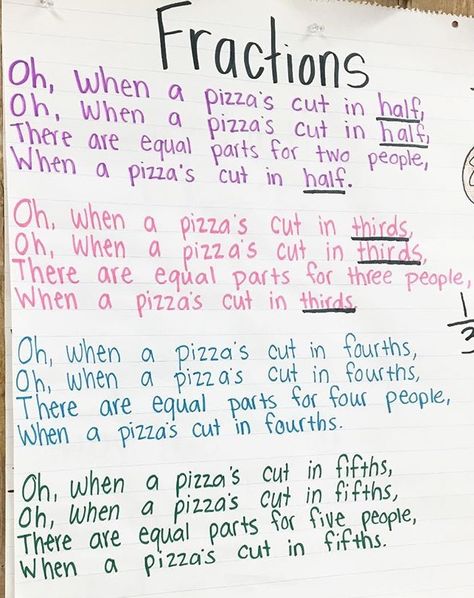 Fractions
Oh, when a pizza's cut in half,
Oh, when a pizza's cut in half,
There are equal parts for two people,
When a pizza's cut in half.
Oh, when a pizza's cut in thirds,
Oh, when a pizza's cut in thirds,
There are equal parts for three people,
When a pizza's cut in thirds.
Oh, when a pizza's cut in fourths,
Oh, when a pizza's cut in fourths,
There are equal parts for four people,
When a pizza's cut in fourths.
Oh, when a pizza's cut in fifths,
Oh, when a pizza's cut in fifths,
There are equal parts for five people,
When a pizza's cut in fifths.